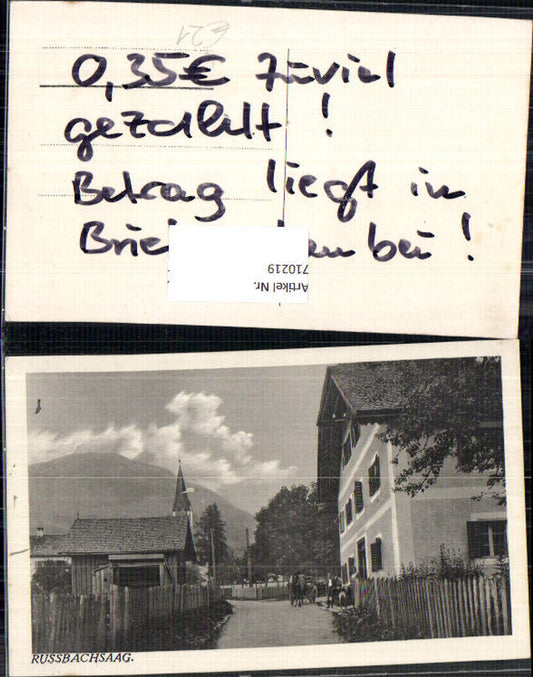 €21
0,35€ zuviel
gezahlt !
Betrag liegt in
bei !
Artikel Nr.
710219
RUSSBACHSAAG.